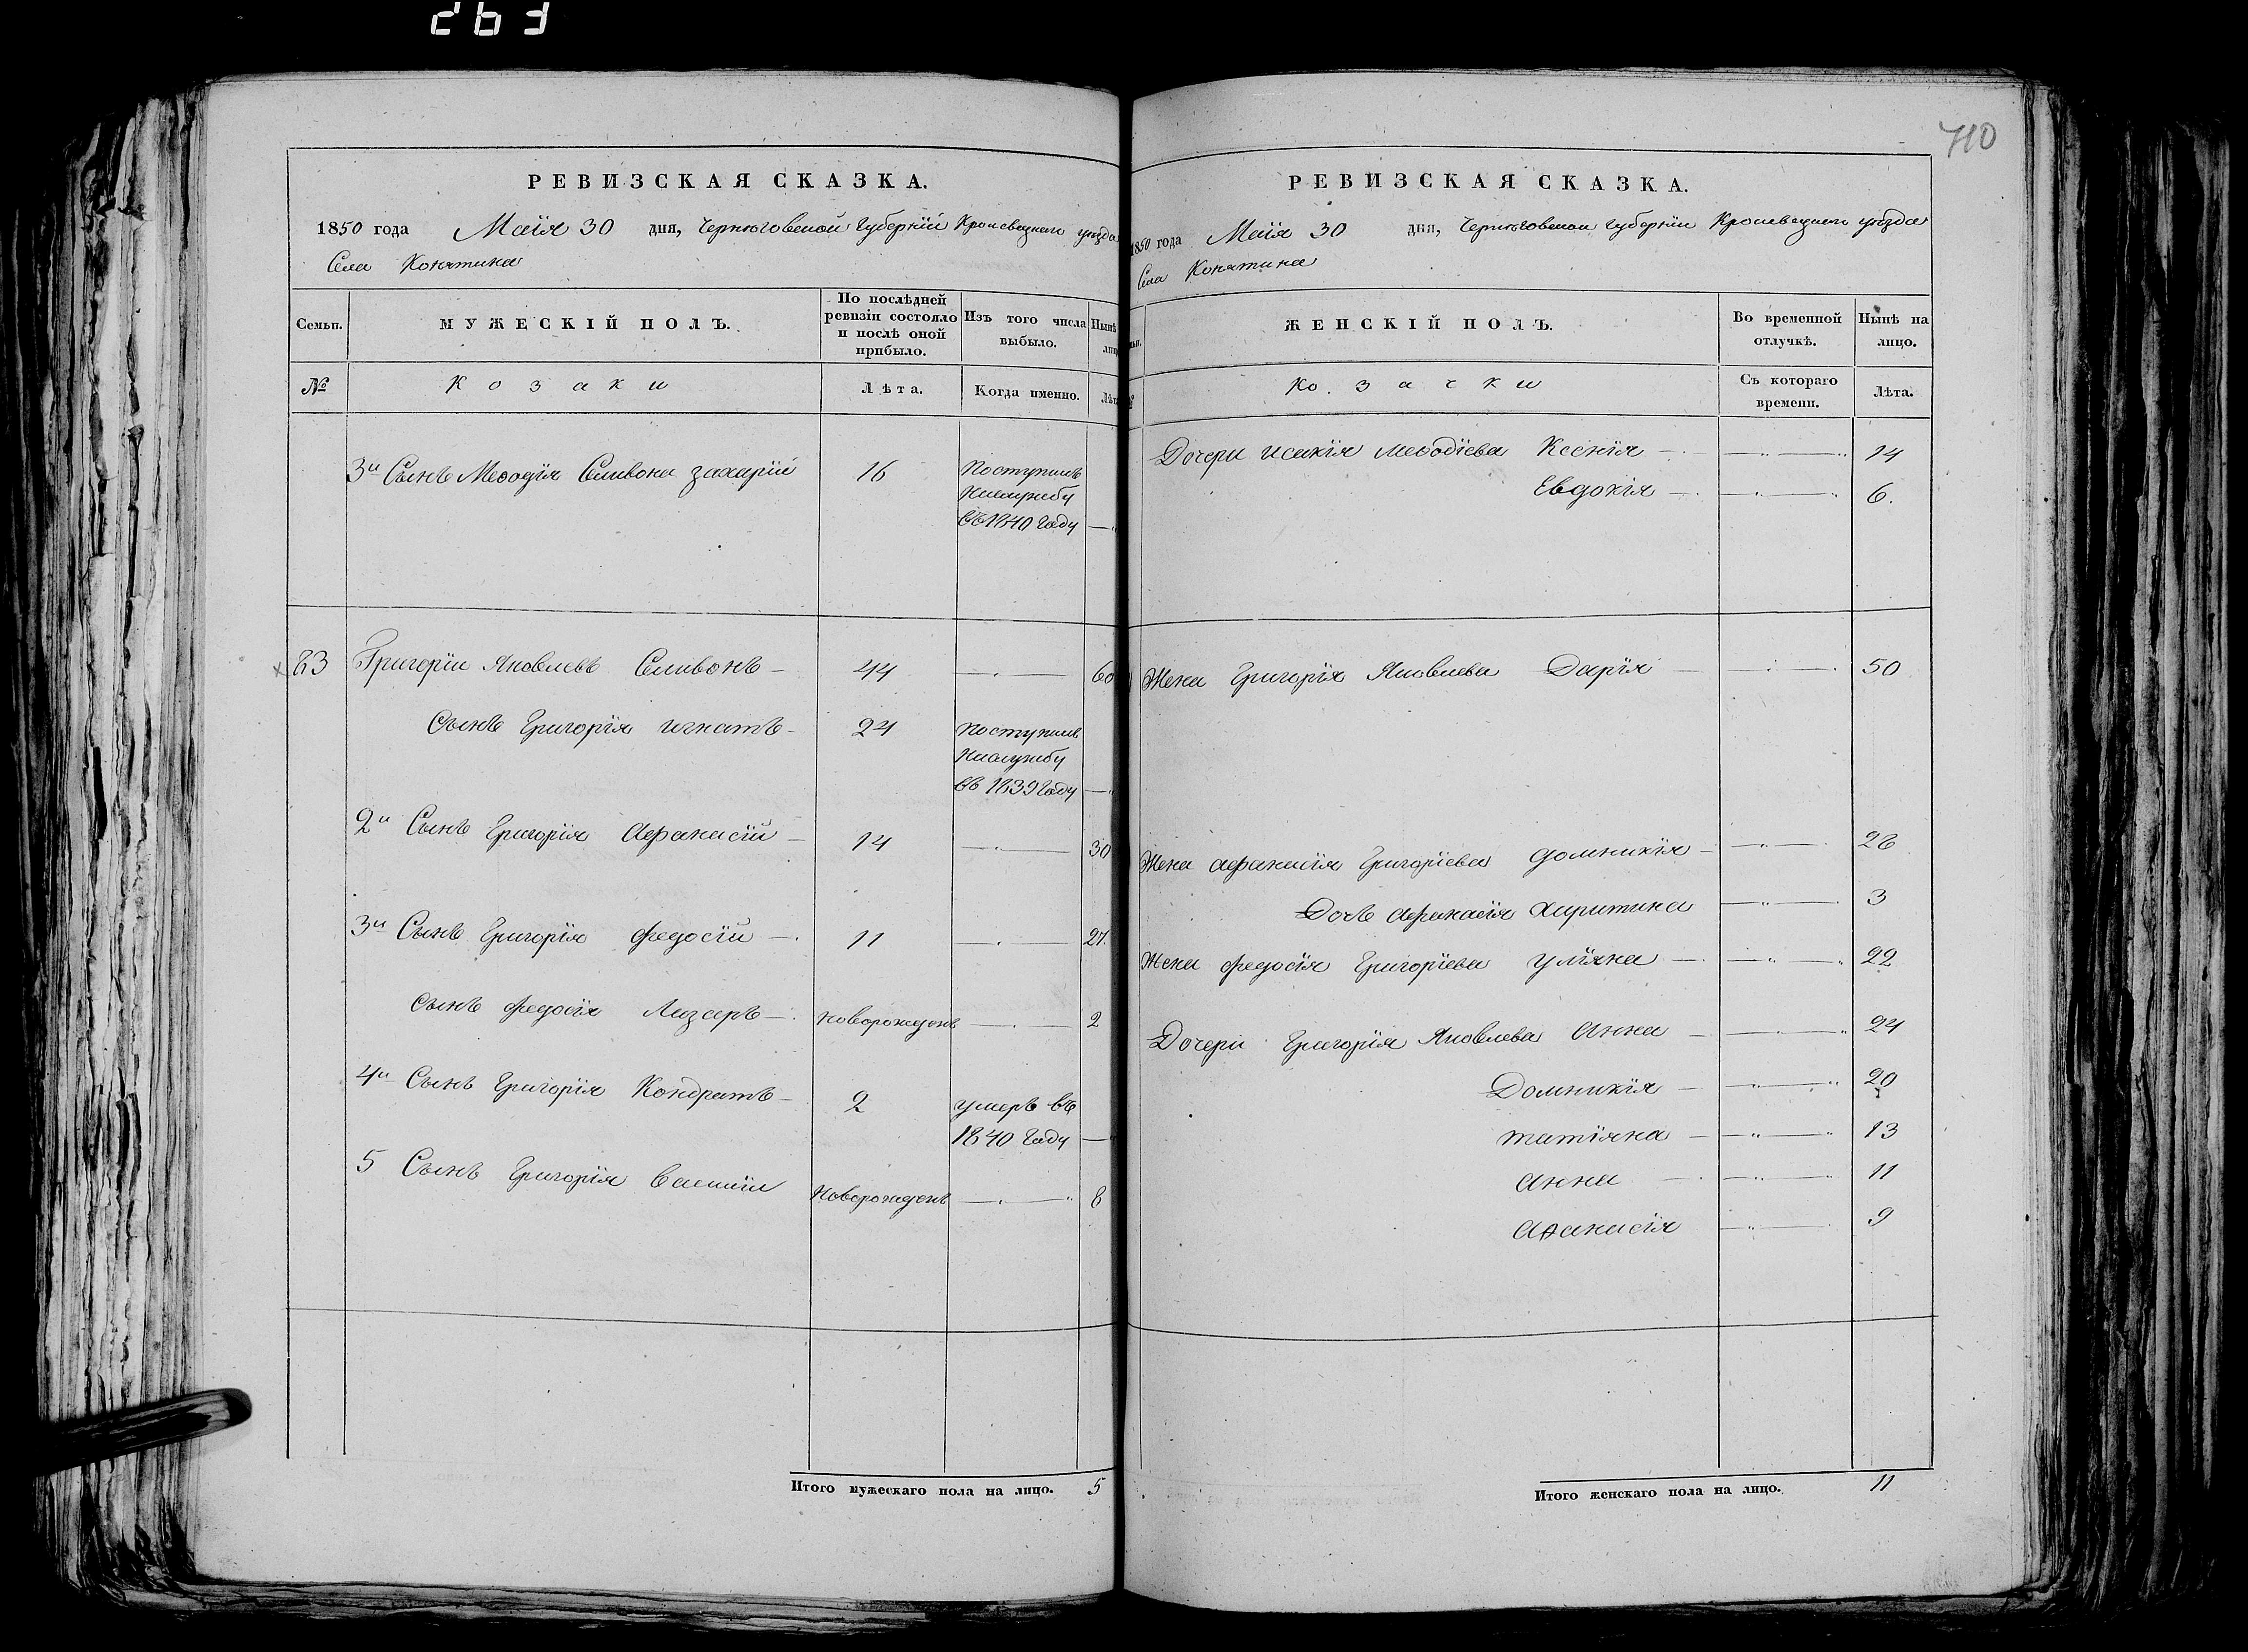 263
РЕВИЗСКАЯ СКАЗКА.
1850 года Маія 30 дня, Черниговской Губерніи Кролевецкаго уѣзда
Села Конятина
Семьи. МУЖЕСКІЙ ПОЛЪ. По послѣдней ревизіи состояло и послѣ оной прибыло. Изъ того числа выбыло. Нынѣ
№ Козаки Лѣта. Когда именно.
3й Сынъ Меѳодія Сливона Захарій 16 Поступилъ
Наслужбу
въ 1840 Году
83 Григорій Яковлевъ Сливонъ 44 60
Сынъ Григорія Игнатъ 24 Поступилъ
Наслужбу
въ 1839 Году
2й Сынъ Григорія Афанасій 14 30
3й Сынъ Григорія Федосій 11 27.
Сынъ Федосія Лазарь Новорожденъ 2
4й Сынъ Григорія Кондратъ 2 умеръ въ
1840 Году
5 Сынъ Григорія Василій Новорожденъ 8
Итого мужескаго пола на лицо. 5
710
РЕВИЗСКАЯ СКАЗКА.
1850 года Маія 30 дня, Черниговской Губерніи Кролевецкаго уѣзда
Села Конятина
ЖЕНСКІЙ ПОЛЪ. Во временной отлучкѣ. Нынѣ на лицо.
Козачки Съ котораго времени. Лѣта.
Дочери Исакія Меѳодіева Ксенія 14
Евдокія 6.
Жена Григорія Яковлева Дарія 50
Жена Афанасія Григоріева Домникія 28
Дочь Афанасія Харитина 3
Жена Федосія Григоріева Уліяна 22
Дочери Григорія Яковлева Анна 24
Домникія 20
Татіяна 13
Анна 11
9
Итого женскаго пола на лицо. 11